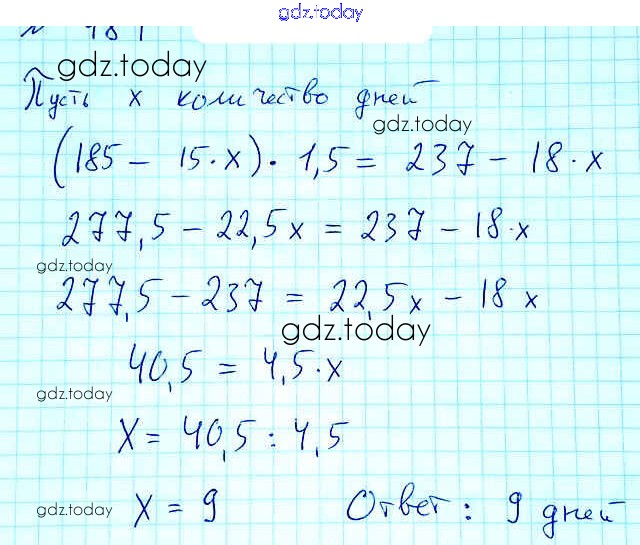 gdz.today
gdz.today
Пусть x количество дней
gdz.today
(185 - 15·x)·1,5 = 237 - 18·x
277,5 - 22,5x = 237 - 18·x
gdz.today
277,5 - 237 = 22,5x - 18x
gdz.today
40,5 = 4,5·x
gdz.today
X = 40,5 : 4,5
gdz.today
X = 9 Ответ: 9 дней